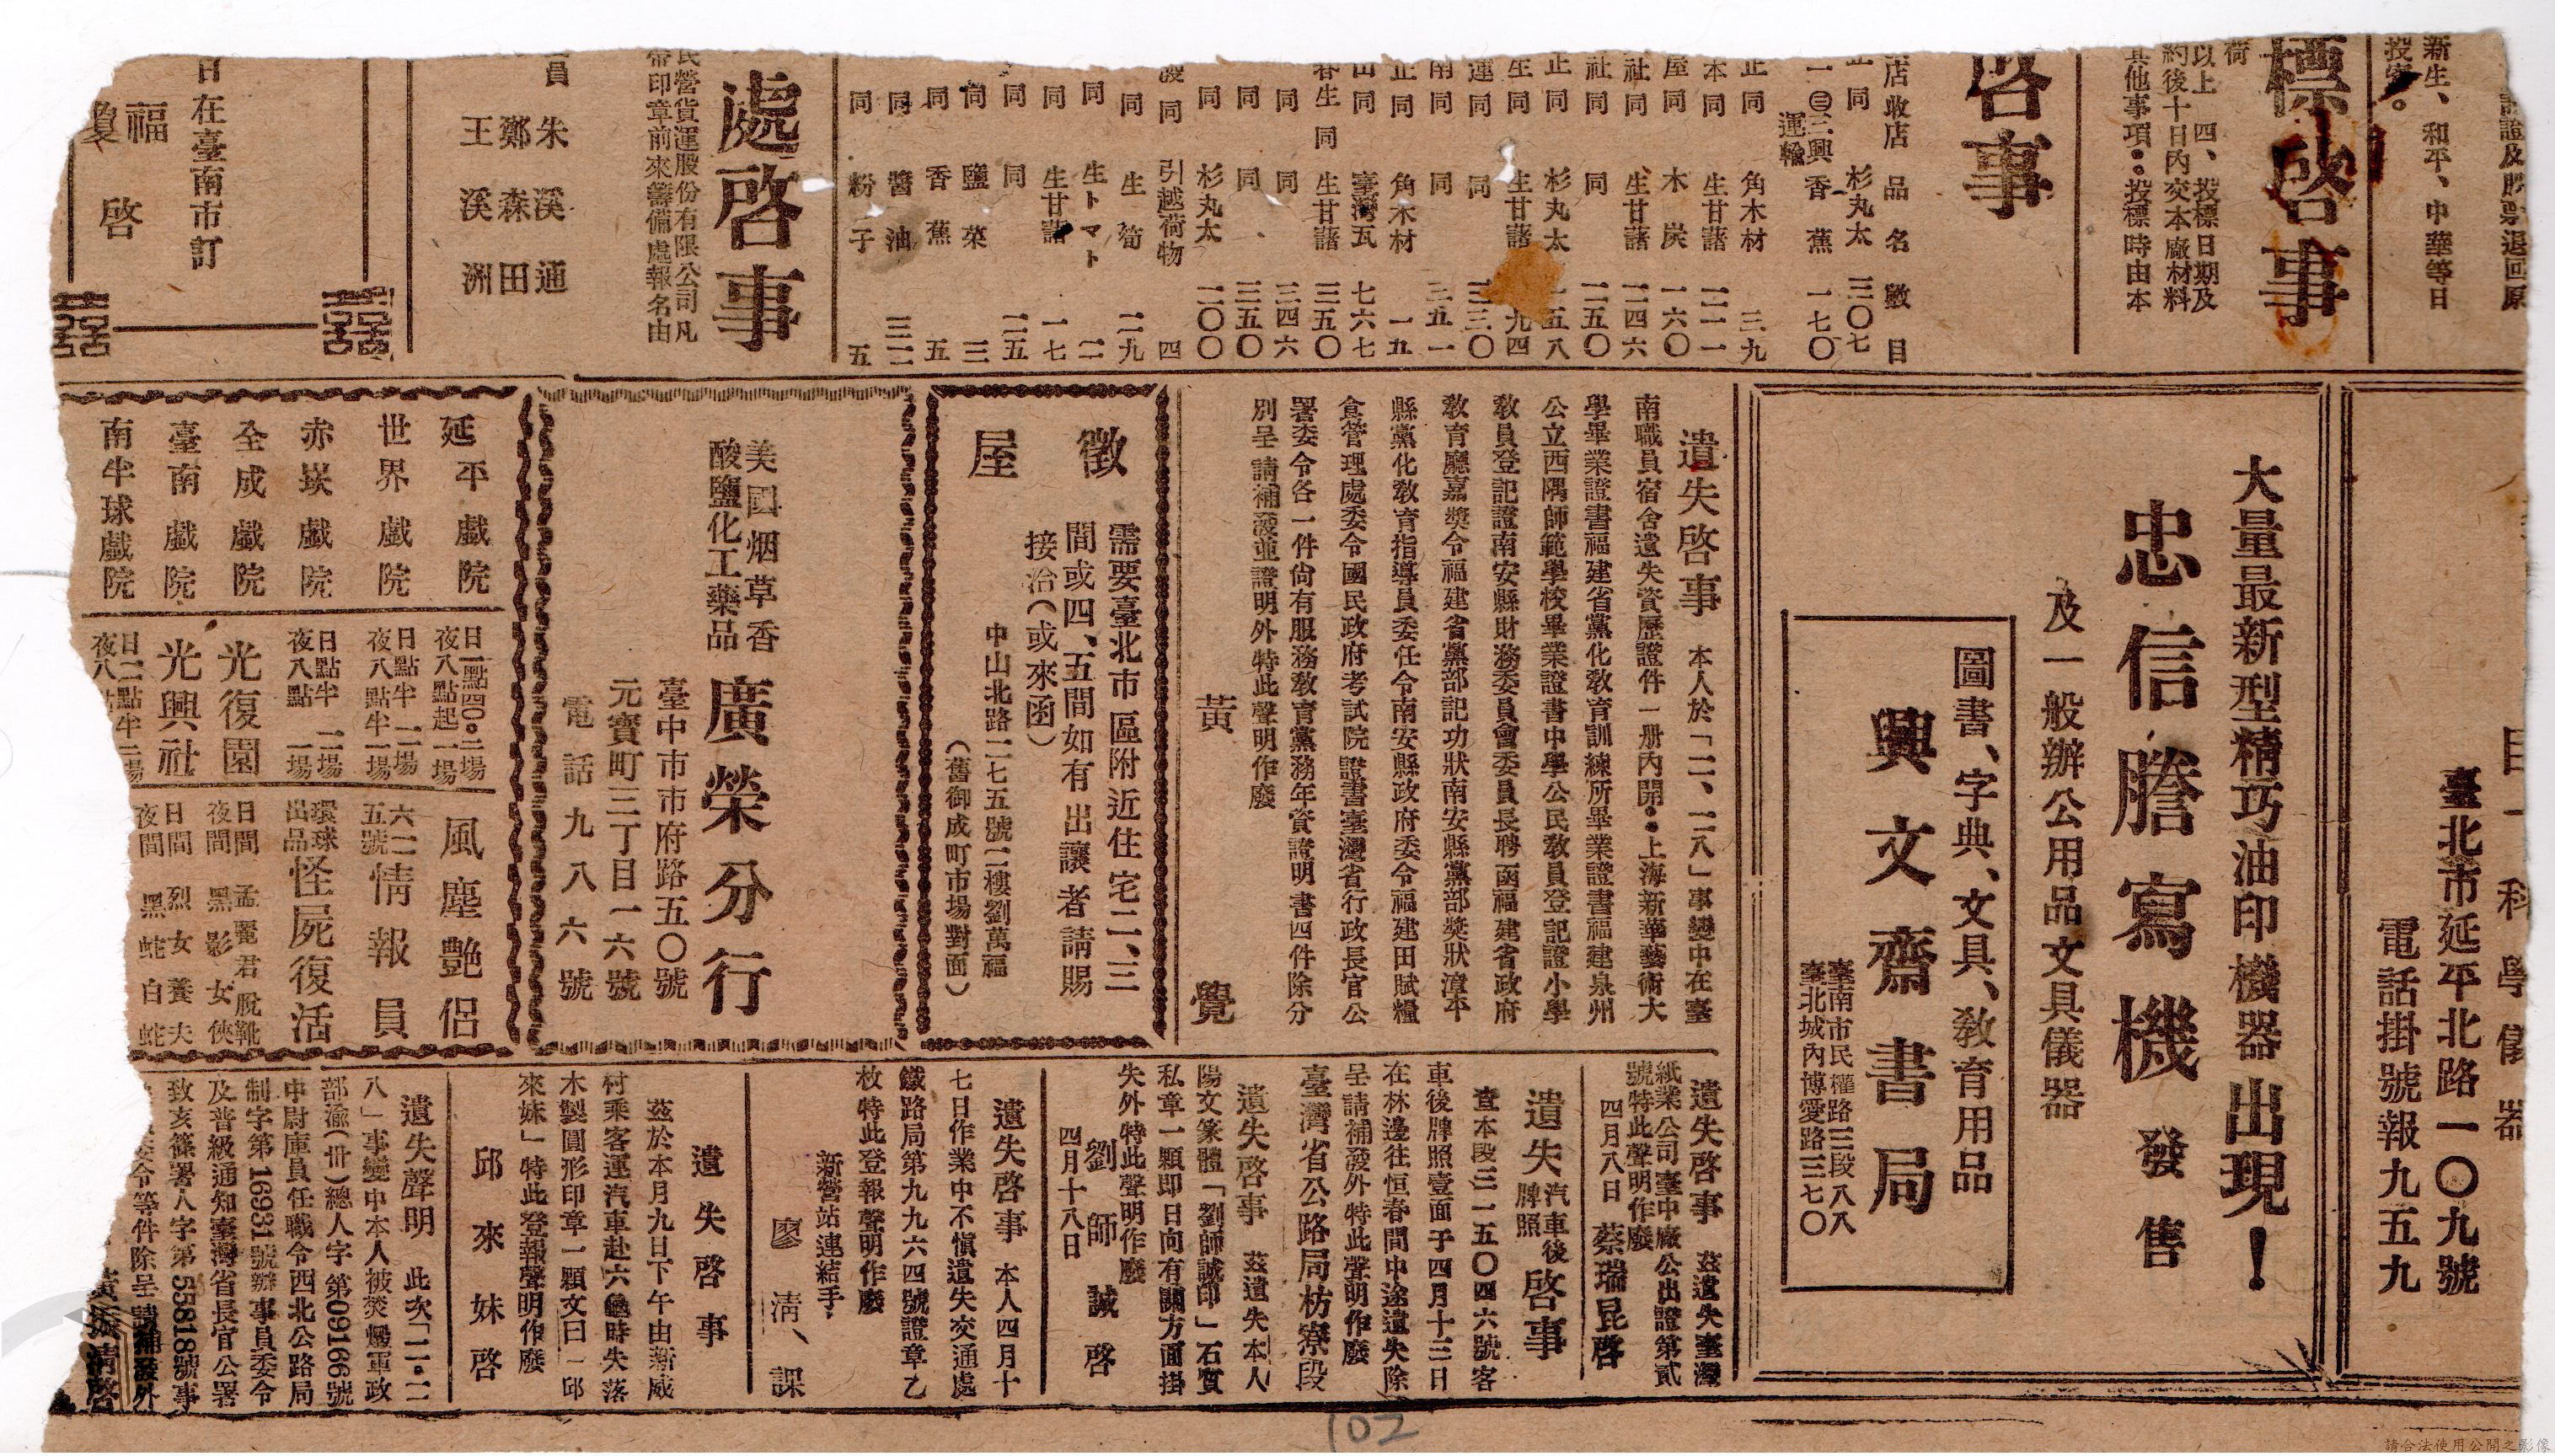 新生、和平、中華等日
標啓事
以上　四、投標日期及
約後十日內交本廠材料
其他事項：投標時由本
啓事
店收店　品　名　數　目
同　杉丸太　三〇七
三興　運輸　香　蕉　一七〇
正同　角木材　三九
本同　生甘藷
屋同　木　炭　一六〇
社同　生甘藷　二四六
社同　同　二五〇
正同　杉丸太
生同　生甘藷
運同　同
南同　同
正同　角木材　一九
山同　臺灣瓦　七六七
春生　同　生甘藷　三五〇
同　同　三四六
同　同　三五〇
同　杉丸太　二〇〇
同　引越荷物　四
同　生　筍　二九
同　生トマト　二
同　生甘藷　一七
同　同　二五
同　鹽　菜　三
同　香　蕉　五
同　醬　油　三二
同　粉　子　五
處啓事
民營貨運股份有限公司凡
帶印章前來籌備處報名由
員　朱　溪　通
鄭　森　田
王　溪　洲
日在臺南市訂
福
啓
目一科學儀器
臺北市延平北路一〇九號
電話掛號報九五九
大量最新型精巧油印機器出現！
忠信謄寫機　發售
及一般辦公用品文具儀器
圖書、字典、文具、敎育用品
興文齋書局
臺南市民權路三段八八
臺北城內博愛路三七〇
遺失啓事　本人於「二、二八」事變中在臺
南職員宿舍遺失資歷證件一册內開：上海新華藝術大
學畢業證書福建省黨化敎育訓練所畢業證書福建泉州
公立西隅師範學校畢業證書中學公民敎員登記證小學
敎員登記證南安縣財務委員會委員長聘函福建省政府
敎育廳嘉獎令福建省黨部記功狀南安縣黨部獎狀漳平
縣黨化敎育指導員委任令南安縣政府委令福建田賦糧
食管理處委令國民政府考試院證書臺灣省行政長官公
署委令各一件尙有服務敎育黨務年資證明書四件除分
別呈請補發並證明外特此聲明作廢
黃　覺
徵屋
需要臺北市區附近住宅二、三
間或四、五間如有出讓者請賜
接洽（或來函）
中山北路二七五號二樓劉萬福
（舊御成町市場對面）
美國烟草香
酸鹽化工藥品
廣榮分行
臺中市市府路五〇號
元寶町三丁目一六號
電話九八六號
延平戲院
日一點四〇・二場
夜八點起一場
風塵艷侶
世界戲院
日點半　二場
夜八點半一場
六二五號　情報員
赤崁戲院
日點半　二場
夜八點　一場
環球出品　怪屍復活
全成戲院
光復園
日間　孟麗君脫靴
夜間　黑影女俠
臺南戲院
光興社
日間　烈女養夫
夜間　黑蛇白蛇
南半球戲院
日二點半二場
遺失啓事　茲遺失臺灣
紙業公司臺中廠公出證第貳
號特此聲明作廢
四月八日　蔡瑞昆啓
遺失汽車後牌照啓事
查本段三一五〇四六號客
車後牌照壹面于四月十三日
在林邊往恒春間中途遺失除
呈請補發外特此聲明作廢
臺灣省公路局枋寮段
遺失啓事　茲遺失本人
陽文篆體「劉師誠印」石質
私章一顆即日向有關方面掛
失外特此聲明作廢
劉師誠啓
四月十八日
遺失啓事　本人四月十
七日作業中不愼遺失交通處
鐵路局第九九六四號證章乙
枚特此登報聲明作廢
新營站連結手
廖淸課
遺失啓事
茲於本月九日下午由新威
村乘客運汽車赴六龜時失落
木製圓形印章一顆文曰「邱
來妹」特此登報聲明作廢
邱來妹啓
遺失聲明　此次「二・二
八」事變中本人被焚燬軍政
部渝（卅）總人字第09166號
中尉庫員任職令西北公路局
制字第16931號辦事員委令
及普級通知臺灣省長官公署
致亥篠署人字第55818號事
委令等件除呈請補發外
啓
102
請合法使用公開之影像